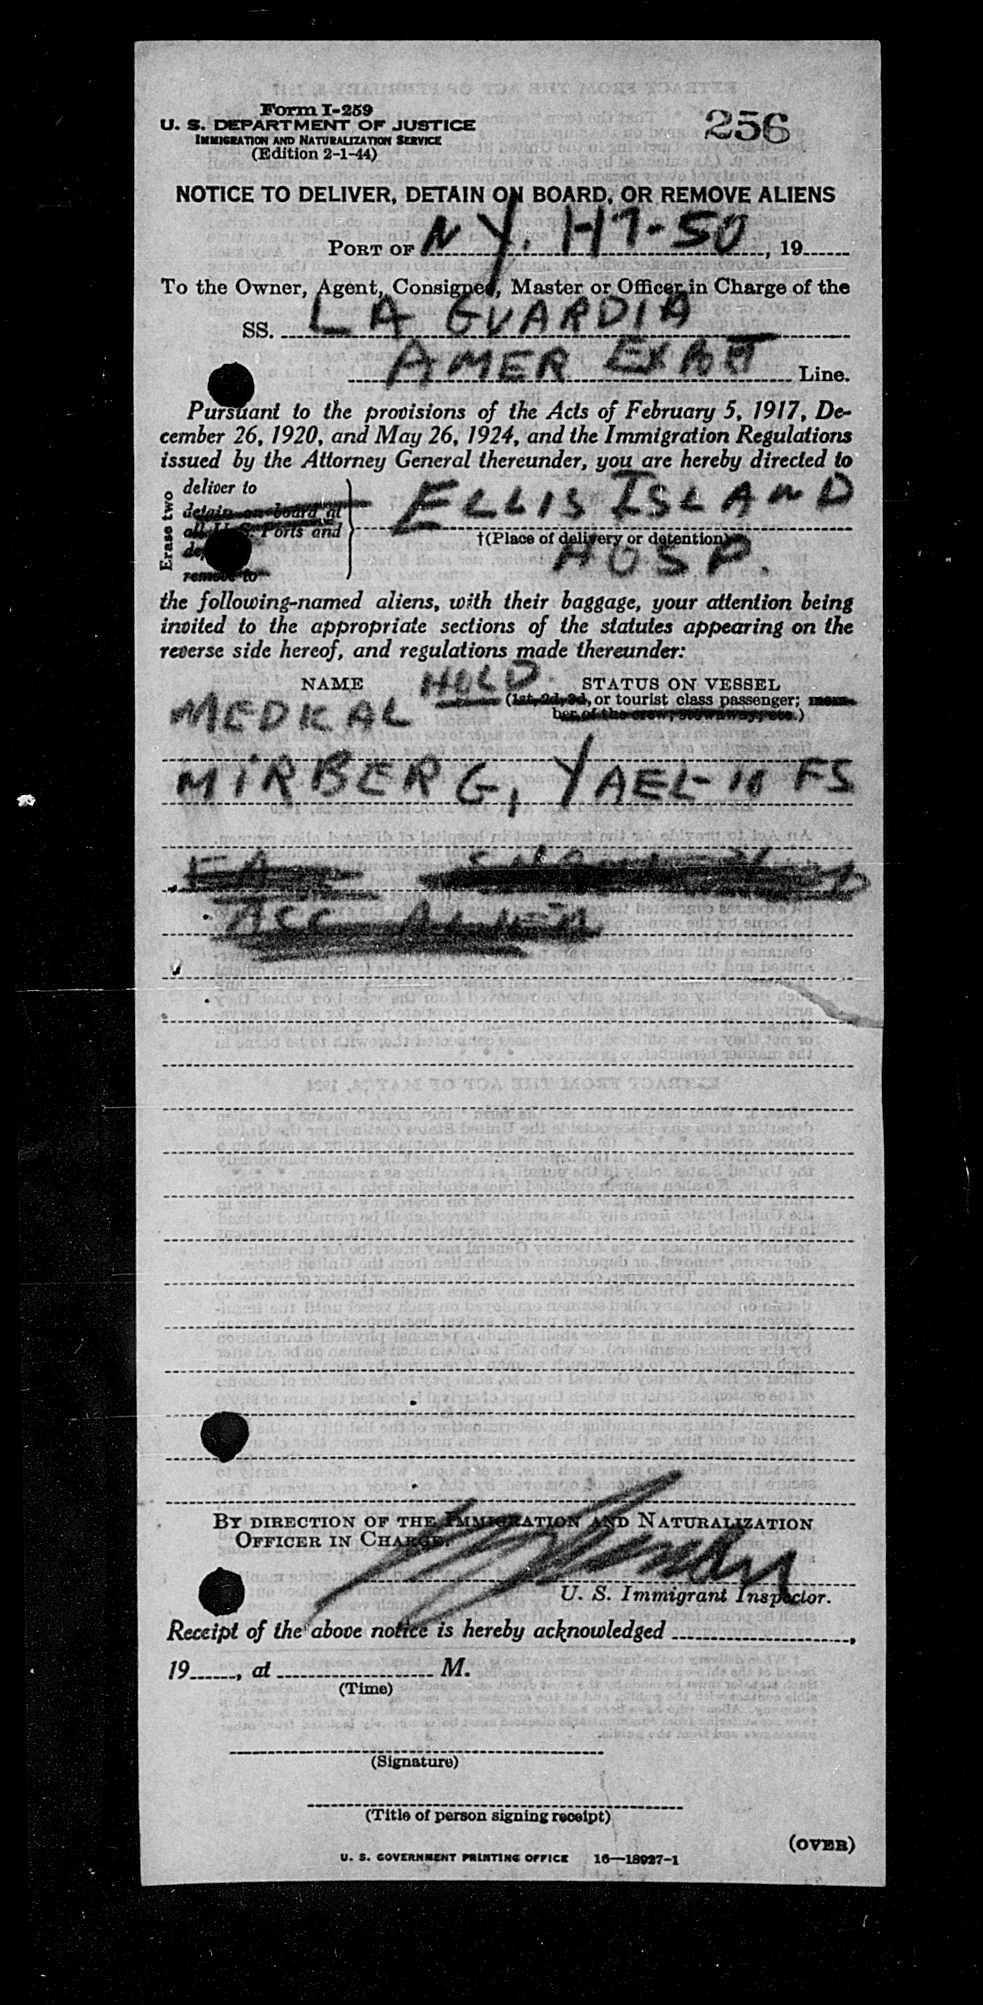 Form I-259
U. S. DEPARTMENT OF JUSTICE
IMMIGRATION AND NATURALIZATION SERVICE
(Edition 2-1-44)
256
NOTICE TO DELIVER, DETAIN ON BOARD, OR REMOVE ALIENS
PORT OF N Y. 1-17-50, 19
To the Owner, Agent, Consignee, Master or Officer in Charge of the
SS. LA GUARDIA
AMER EXPORT Line.
Pursuant to the provisions of the Acts of February 5, 1917, De-
cember 26, 1920, and May 26, 1924, and the Immigration Regulations
issued by the Attorney General thereunder, you are hereby directed to
Erase two
deliver to
detain on board at
all U. S. Ports and
remove to
ELLIS ISLAND
†(Place of delivery or detention)
HOSP.
the following-named aliens, with their baggage, your attention being
invited to the appropriate sections of the statutes appearing on the
reverse side hereof, and regulations made thereunder:
NAME
STATUS ON VESSEL
MEDICAL HOLD.
(1st, 2d, 3d, or tourist class passenger; mem-
ber of the crew, stowaway, etc.)
MIRBERG, YAEL- 10 FS
ACC
BY DIRECTION OF THE IMMIGRATION AND NATURALIZATION
OFFICER IN CHARGE.
U. S. Immigrant Inspector.
Receipt of the above notice is hereby acknowledged ,
19 , at M.
(Time)
(Signature)
(Title of person signing receipt)
(OVER)
U. S. GOVERNMENT PRINTING OFFICE 16—18927-1